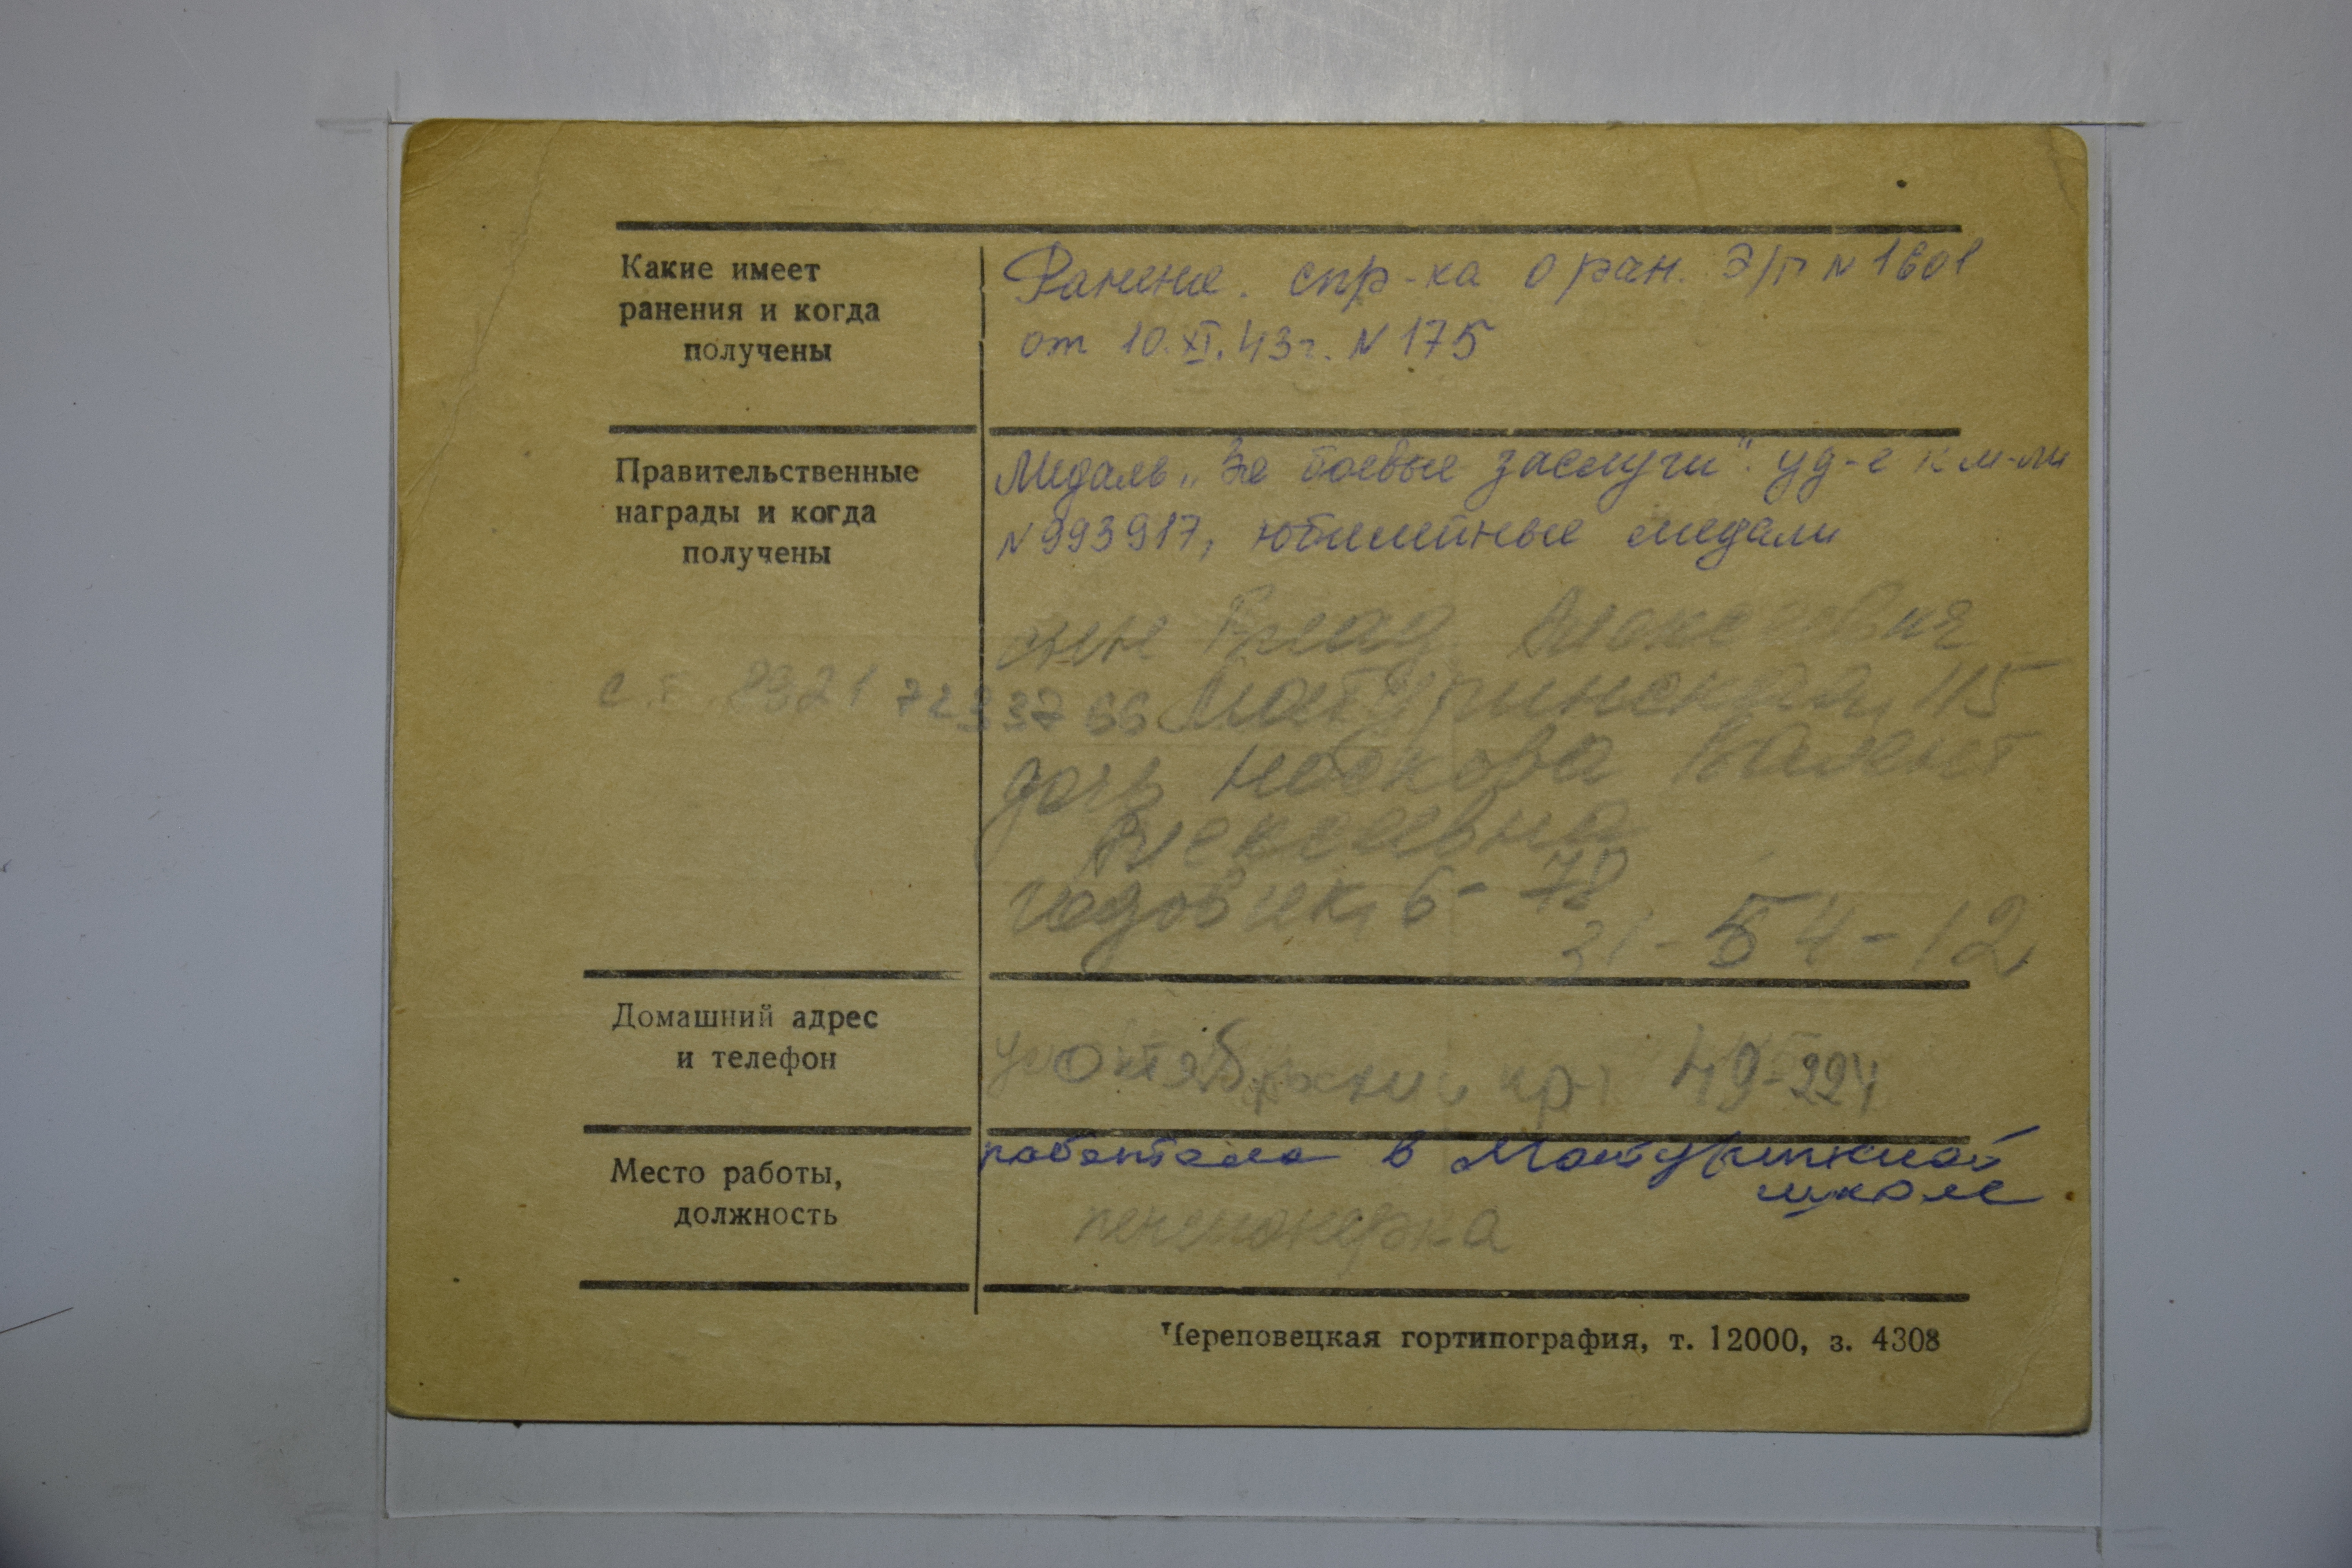 Какие имеет
ранения и когда
получены
Ранение. спр-ка о ран. Э/г № 1601
от 10.XI.43г. N 175
Правительственные
награды и когда
получены
Медаль „За боевые заслуги". уд-е к м-ли
№ 993917, юбилейные медали
сын Влад Алексеевич
72 3 37 66 Матуринская, 115
дочь Носкова Валент
Алексеевна
31-54-12
Домашний адрес
и телефон
Октябрьский пр. 49-224
Место работы,
должность
работала в Матуринской
школе
пенсионерка
Череповецкая гортипография, т. 12000, з. 4308